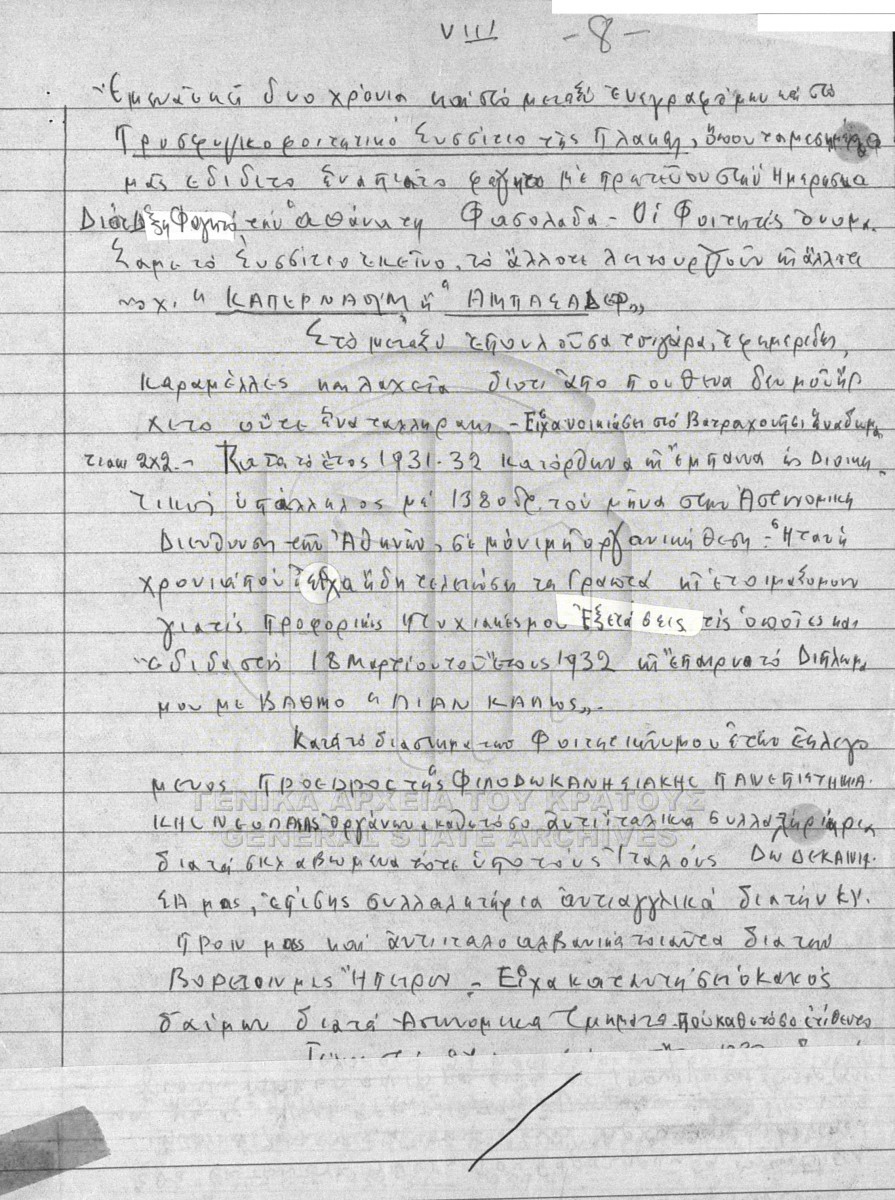 VIII -8-
Ἔμεινα ἐκεῖ δυο χρόνια και στο μεταξύ ἐνεγραφόμην και στο
Προσφυγικοφοιτητικό Συσσίτιο τῆς Πλάκας, ὅπου τα μεσημέρια
μᾶς ἐδίδετο ἕνα πιάτο φαγητο μέ πρωτεύουσα στην Ἡμερησία
Διάταξη Φαγητό την "ἀθάνατη Φασολάδα - Οἱ Φοιτητές ὀνομά
ζαμε το Συσσίτιο ἐκεῖνο, τὸ ἄλλοτε λειτουργοῦν κι' ἄλλοτε
ὄχι, "ΚΑΠΕΡΝΑΟΥΜ ἤ "ΑΜΠΑΣΑΔΕΡ"
Στο μεταξύ ἐπουλοῦσα τσιγάρα, ἐφημερίδες,
καραμέλλες και λαχεῖα διοτι ἀπο πουθενα δεν μοῦ ἤρ
χετο οὔτε ἕνα ταλληράκι. - Εἶχα νοικιάσει στό Βατραχονῆσι ἕνα δωμα
τιακι 2x2. - Κατα το ἔτος 1931-32 κατόρθωνα κι' ἔμπαινα ὡς Διοικη
τικός ὑπάλληλος μέ 1380 δρ. τον μῆνα στην Ἀστυνομική
Διεύθυνση τῶν Ἀθηνῶν, σέ μόνιμη ὀργανική θεση. Ἦταν ἡ
χρονιά ποὺ εἶχα ἤδη τελειώσει τα Γραπτά κι' ἑτοιμαζομουν
για τίς προφορικές πτυχιακές μου Ἐξετάσεις τίς ὁποῖες και
ἔδιδα στή 18 Μαρτίου τοῦ ἔτους 1932 κι' ἔπαιρνα τό Δίπλωμά
μου με ΒΑΘΜΟ "ΛΙΑΝ ΚΑΛΩΣ".
Κατά το διαστημα των Φοιτητικῶν μου ἐτῶν ἐκλεγο
μενος ΠΡΟΕΔΡΟΣ τῆς "ΦΙΛΟΔΩΔΕΚΑΝΗΣΙΑΚΗΣ ΠΑΝΕΠΙΣΤΗΜΙΑ
ΚΗΣ ΝΕΟΛΑΙΑΣ ὀργάνωνα καθε τόσο ἀντιϊταλικά συλλαλητήρια
δια τά σκλαβωμενα τότε ὑπο τοὺς Ἰταλούς ΔΩΔΕΚΑΝΗ
ΣΑ μας, ἐπίσης συλλαλητήρια ἀντιαγγλικά δια τήν ΚΥ
προν μας καί ἀντιιταλοαλβανικά τοιαῦτα δια την
Βόρειον μας Ἤπειρον - Εἶχα καταντήσει ὁ κακός
δαίμων δια τά Ἀστυνομικά Τμήματα που καθε τόσο
ΓΕΝΙΚΑ ΑΡΧΕΙΑ ΤΟΥ ΚΡΑΤΟΥΣ
GENERAL STATE ARCHIVES